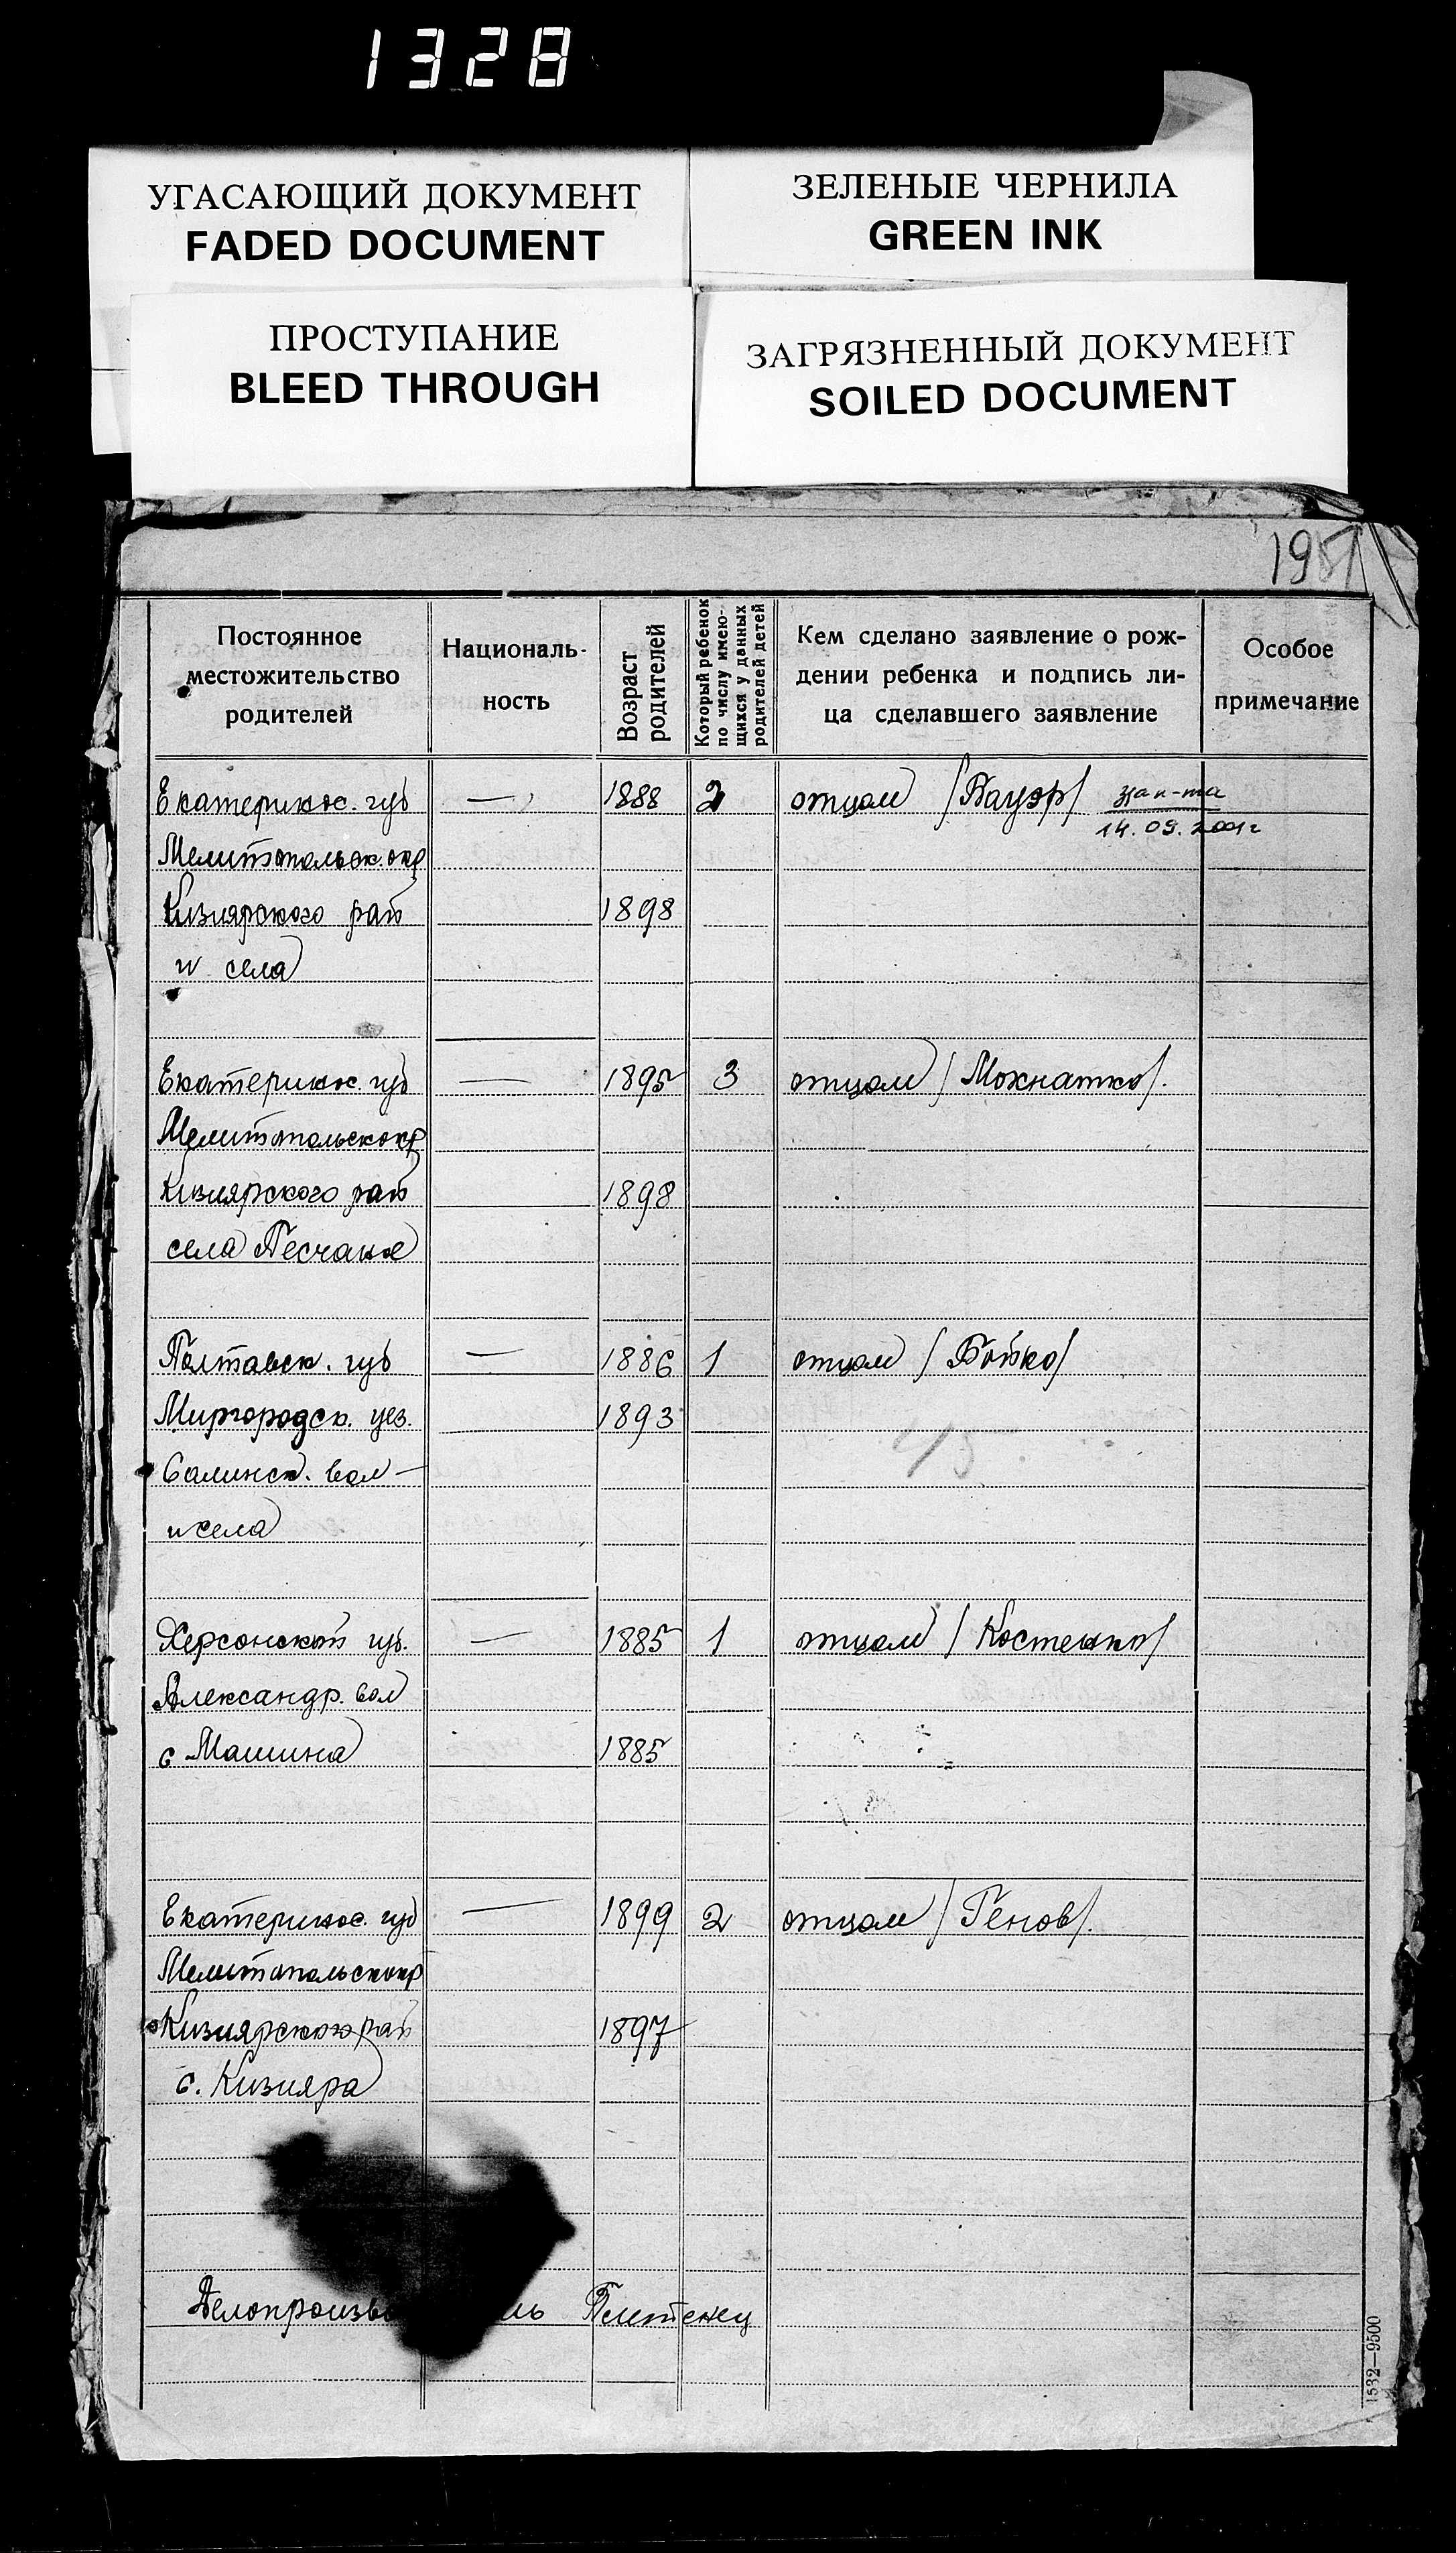 1328
УГАСАЮЩИЙ ДОКУМЕНТ
FADED DOCUMENT
ЗЕЛЕНЫЕ ЧЕРНИЛА
GREEN INK
ПРОСТУПАНИЕ
BLEED THROUGH
ЗАГРЯЗНЕННЫЙ ДОКУМЕНТ
SOILED DOCUMENT
195
Постоянное
местожительство
родителей
Националь-
ность
Возраст
родителей
Который ребенок
по числу имею-
щихся у данных
родителей детей
Кем сделано заявление о рож-
дении ребенка и подпись ли-
ца сделавшего заявление
Особое
примечание
Екатеринос. губ — 1888 2 отцом /Бауэр/ зап-та
14.09.2001г
Мелитопольск. окр
Кизиярского рай 1898
и села
Екатеринос. губ — 1895 3 отцом /Мохнатко/.
Мелитопольск окр
Кизиярского рай 1898
села Песчане
Полтавск. губ — 1886 1 отцом /Бойко/
Миргородск. уез. 1893
Салинск. вол —
и села
15
Херсонской губ. — 1885 1 отцом /Костенко/
Александр. вол
с Машина 1885
Екатеринос. губ — 1899 2 отцом /Генов/.
Мелитопольск окр
Кизиярского рай 1897
с. Кизияра
Делопроизв ль
1532—9500